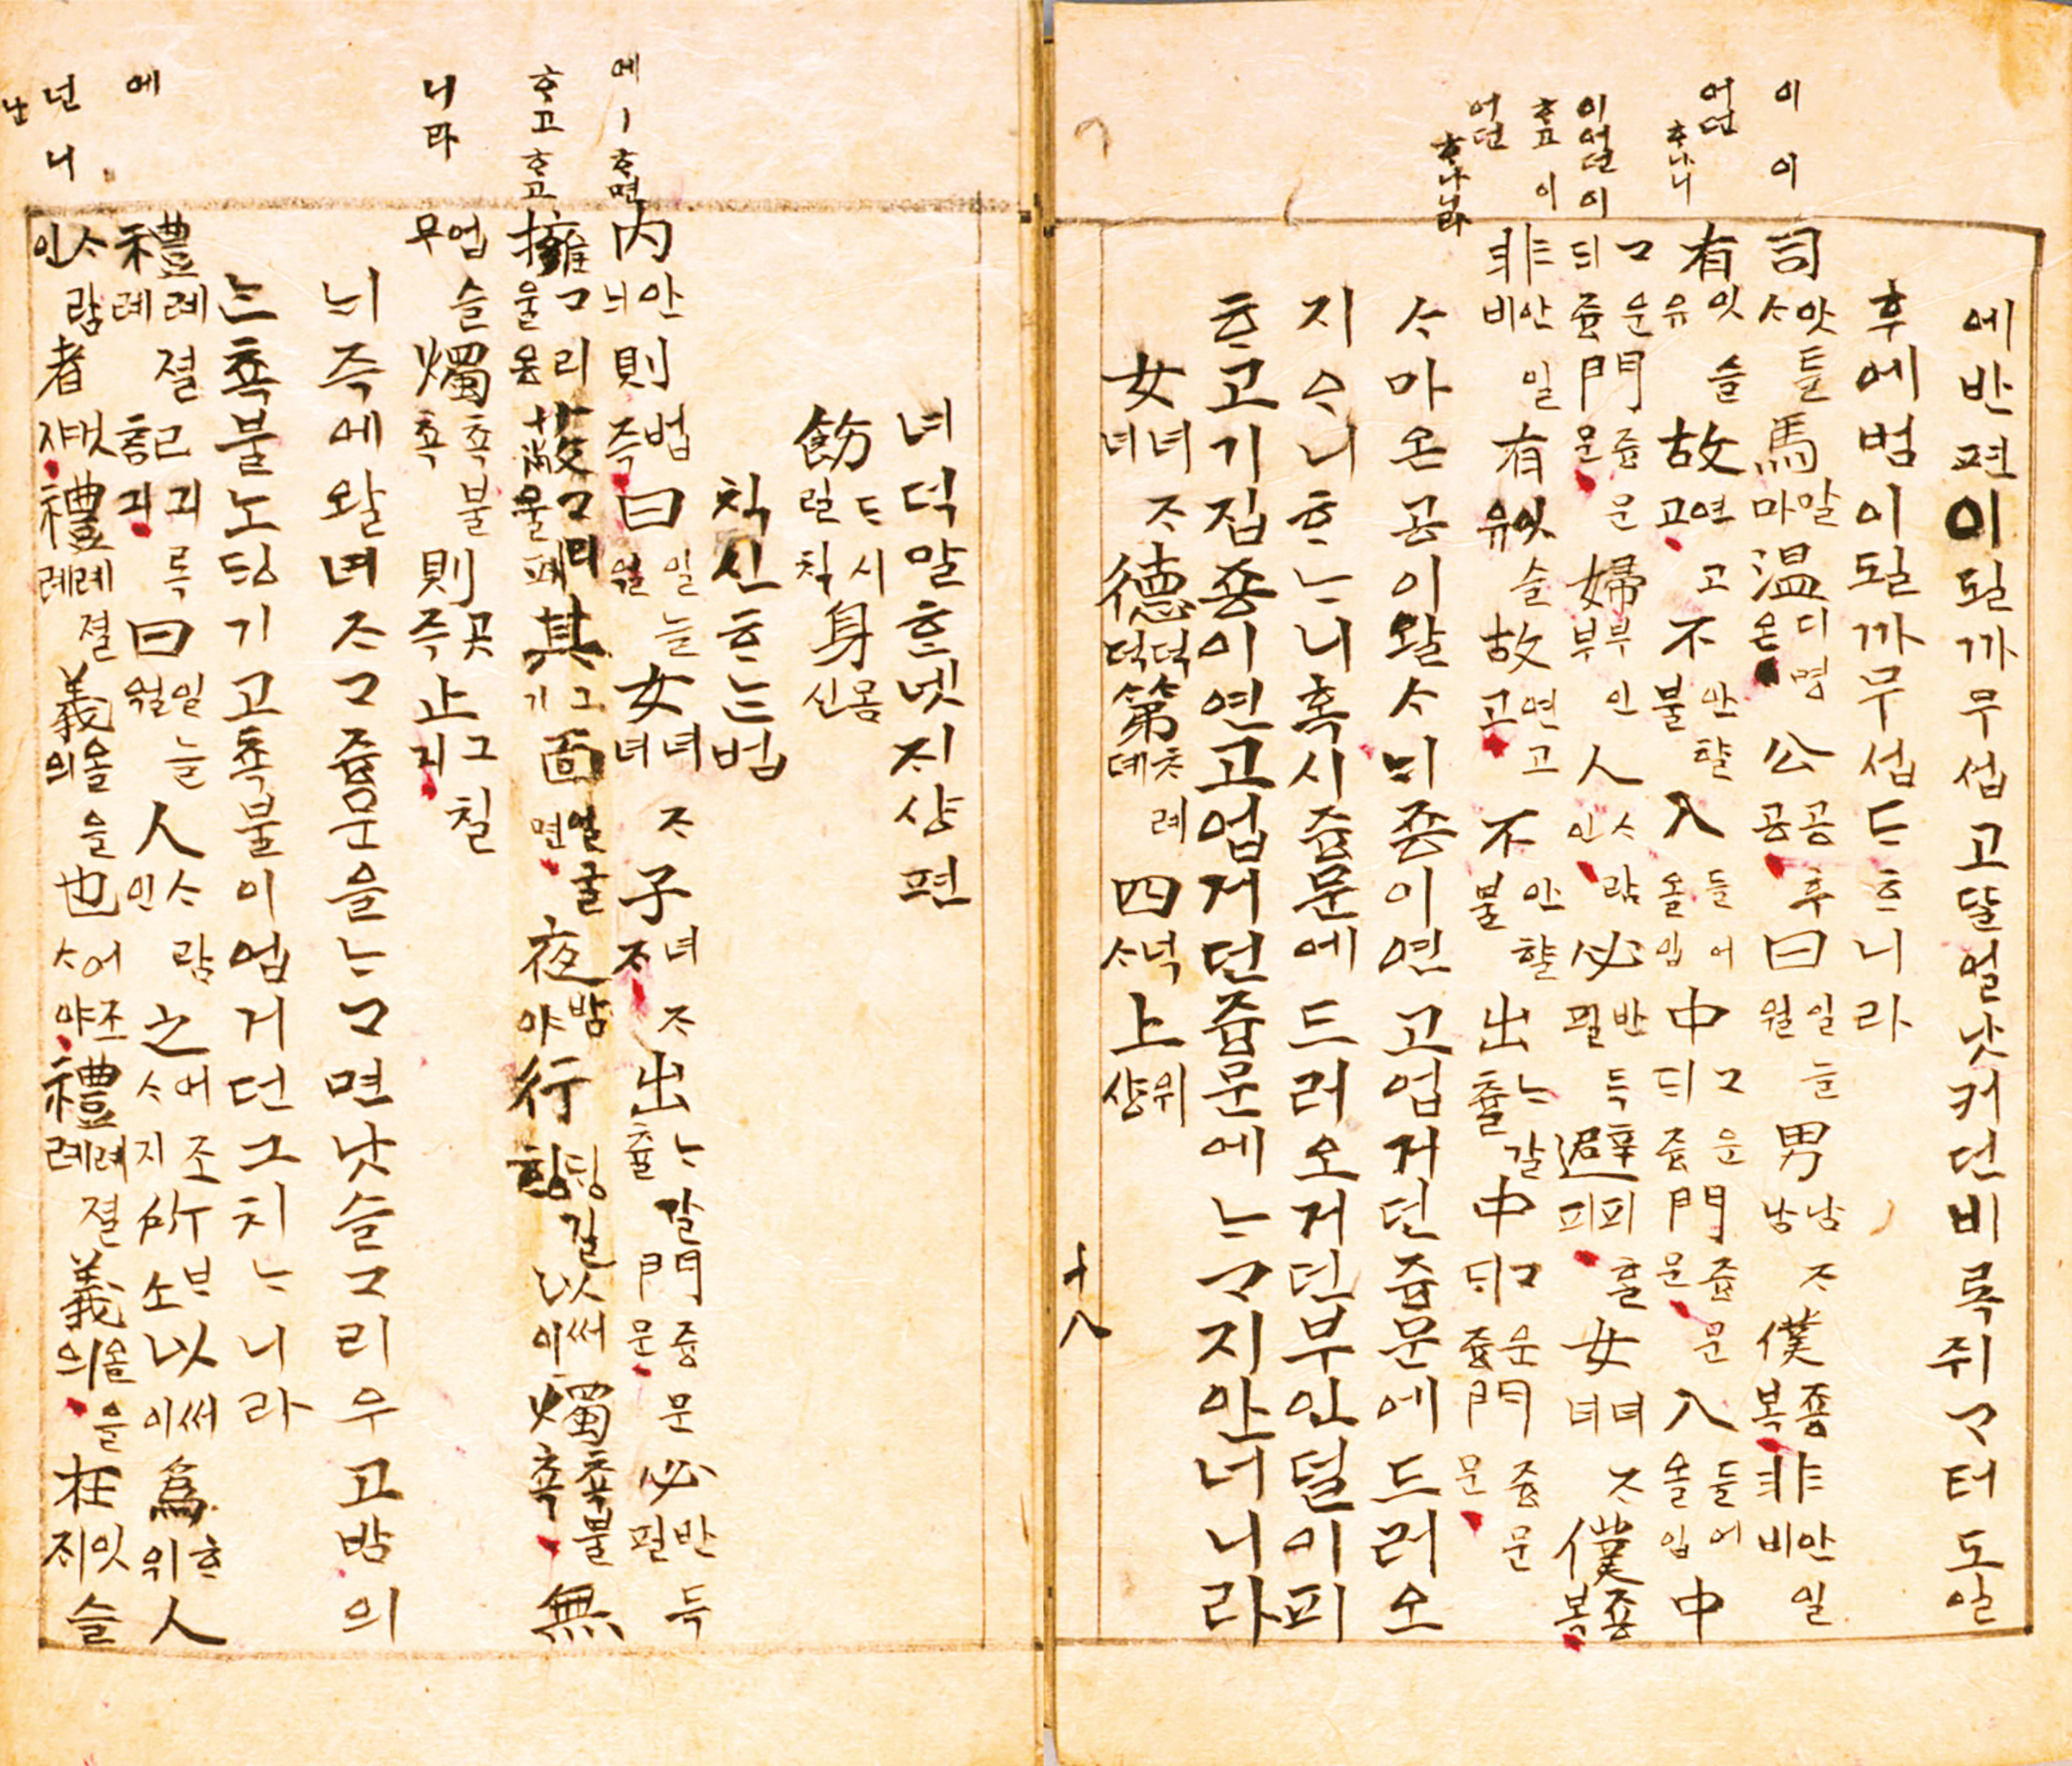 이 이
어던 ᄒᆞ나니
이어던이
ᄒᆞ고 이
어던 ᄒᆞ나니라
에반편이될까무섭고ᄯᆞᆯ얼낫커던비록쥐ᄀᆞ터도일
후에범이될까무섭ᄃᆞᄒᆞ니라
司맛틀ᄉᆞ馬말마溫디명온公공후공曰일늘월男남ᄌᆞ남僕죵복非안일비
有잇슬유故연고고不안할불入들어올입中ᄀᆞ운ᄃᆡ즁門즁문문入들어올입中
ᄀᆞ운ᄃᆡ즁門즁문문婦부인부人ᄉᆞ람인必반득필避피홀피女녀ᄌᆞ녀僕죵복
非안일비有잇슬유故연고고不안할불出ᄂᆞ갈츌中ᄀᆞ운ᄃᆡ즁門즁문문
ᄉᆞ마온공이왈ᄉᆞᄂᆡ죵이연고업거던즁문에드러오
지ᄋᆞ니ᄒᆞᄂᆞ니혹시즁문에드러오거던부인덜이피
ᄒᆞ고기집죵이연고업거던즁문에ᄂᆞᄀᆞ지안너니라
女녀ᄌᆞ녀德덕덕第ᄎᆞ례뎨四넉ᄉᆞ上위샹
十八
에ㅣᄒᆞ면
ᄒᆞ고ᄒᆞ고
니라
에
넌니
난
녀덕말ᄒᆞᆫ넷ᄌᆡ샹편
飭ᄃᆞ시런칙身몸신
칙신ᄒᆞᄂᆞᆫ법
內안ᄂᆡ則법즉曰일늘월女녀ᄌᆞ녀子녀ᄌᆞᄌᆞ出ᄂᆞ갈츌門즁문문必반득필
擁ᄀᆞ리울옹蔽ᄀᆞ리울폐其그기面얼굴면夜밤야行ᄃᆡᆼ길ᄒᆡᆼ以써이燭촉불촉無
업슬무燭촉불촉則곳즉止그칠지
ᄂᆡ즉에왈녀ᄌᆞᄀᆞ즁문을ᄂᆞᄀᆞ면낫슬ᄀᆞ리우고밤의
ᄂᆞᆫ촉불노ᄃᆡᆼ기고촉불이업거던그치ᄂᆞ니라
禮례졀례記긔록긔曰일늘월人ᄉᆞ람인之어조ᄉᆞ지所ᄇᆞ소以써이爲ᄒᆞ위人
ᄉᆞ람인者것쟈禮례졀례義올을의也어조ᄉᆞ야禮례졀례義올을의在잇슬ᄌᆡ